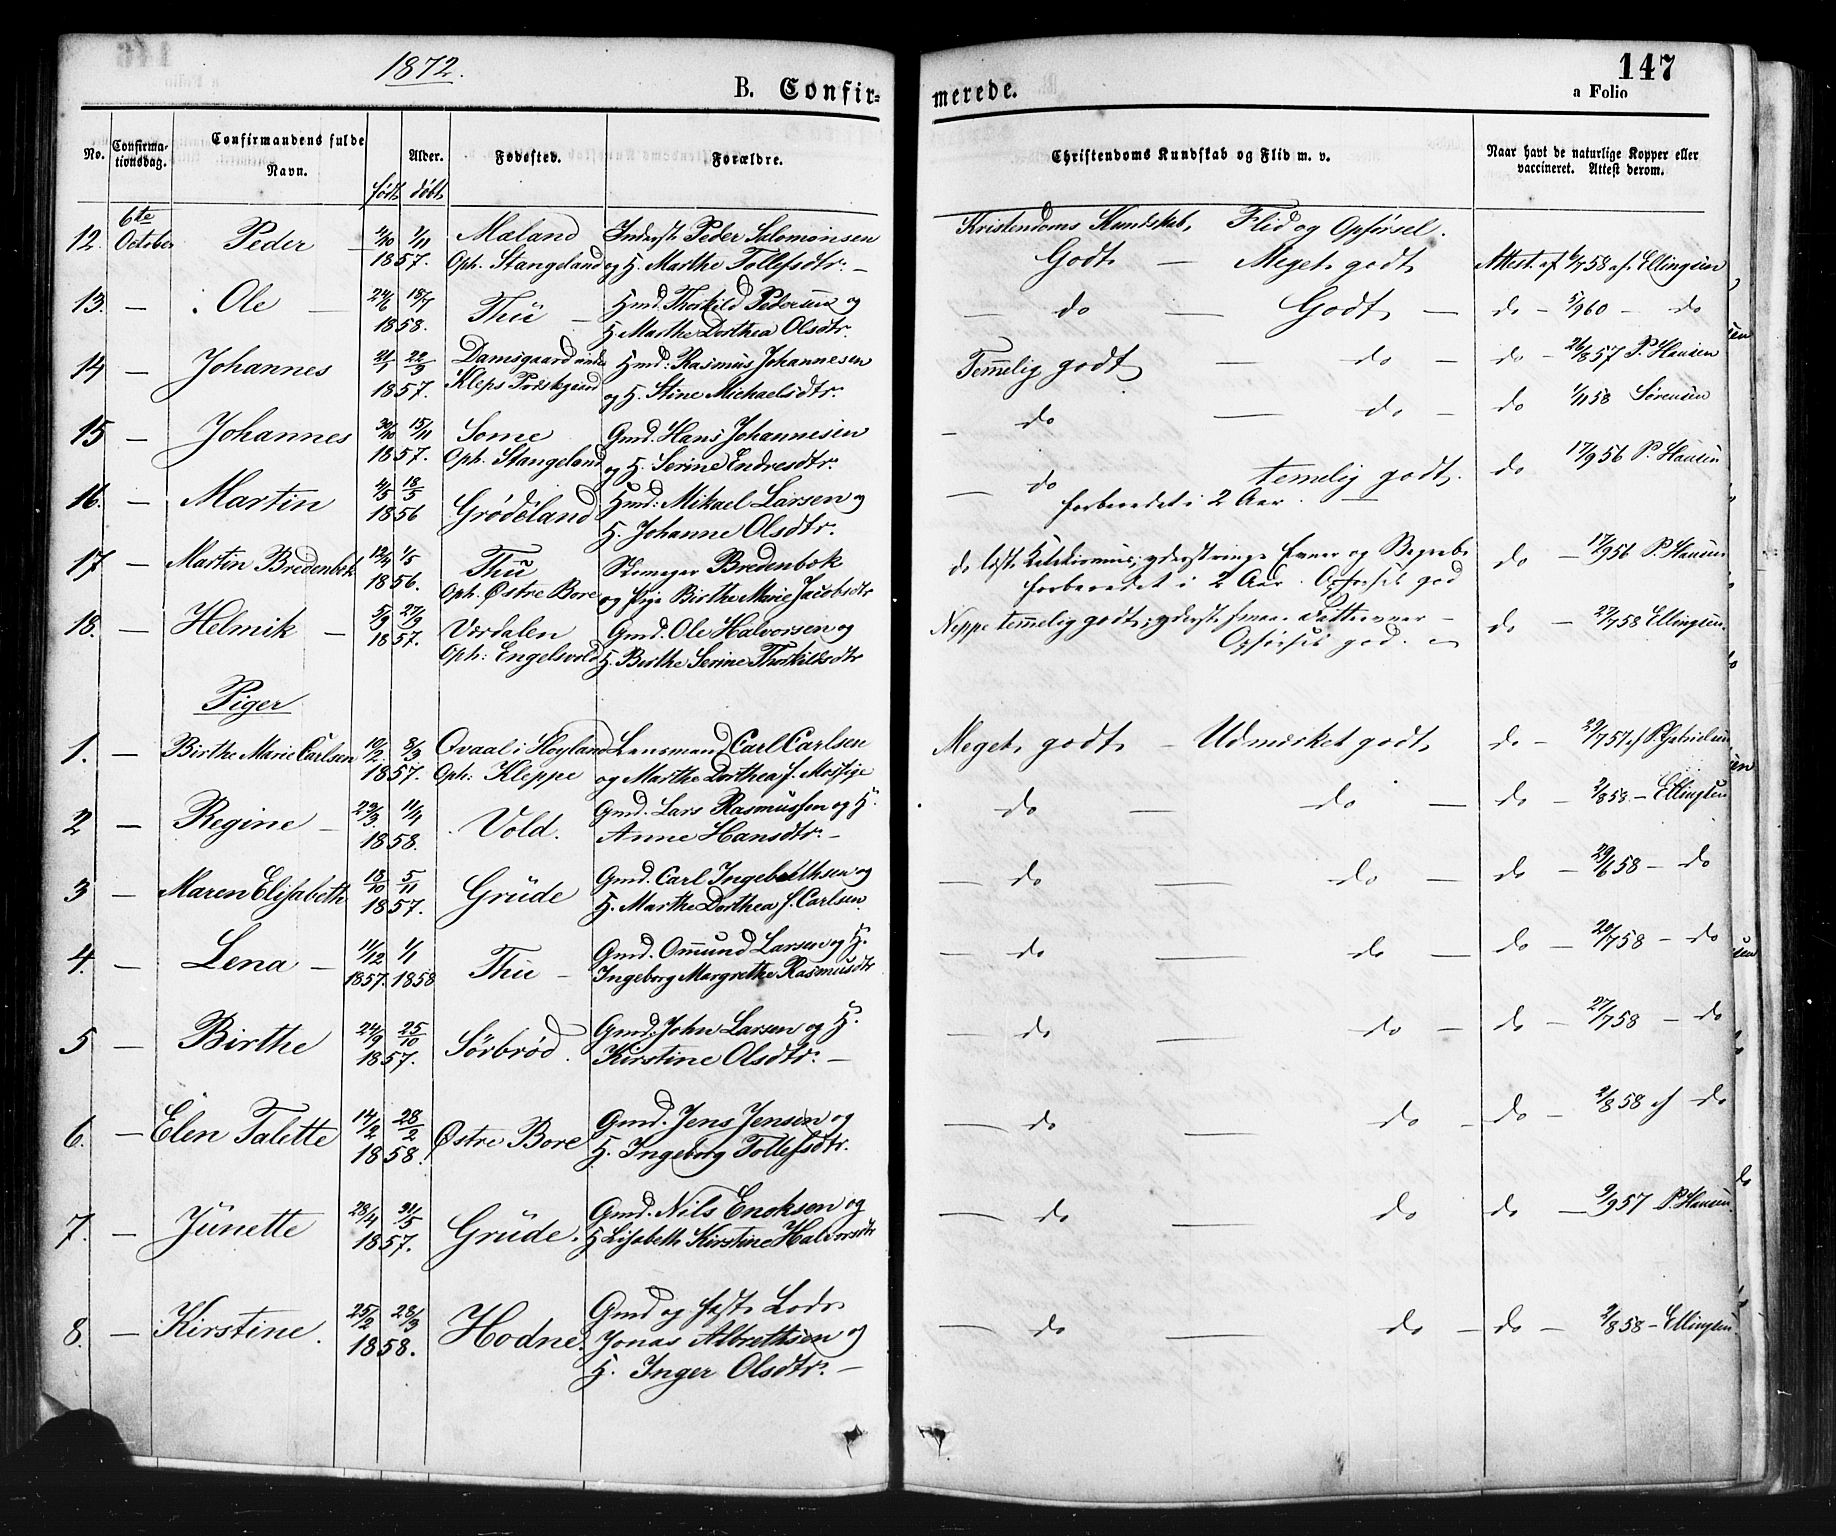 1872.
B. Confir-
merede.
147
a Folio
No.
Confirma-
tionsdag.
Confirmandens fulde
Navn.
Alder.
født døbt
Fødested.
Forældre.
Christendoms Kundskab og Flid m. v.
Naar havt de naturlige Kopper eller
vaccineret. Attest derom.
6te
12. October Peder — 2/10 1/11 Mæland Inderst Peder Salomonsen
1857. Oph. Stangeland og H. Marthe Tollefsdtr. —
Kristendoms Kundskab, Flid og Opførsel.
Godt — Meget godt Attest. af 6/7 58 af Ellingsen
13. — Ole — 24/6 18/7 Thu — Hmd. Thorkild Pedersen og
1858. H. Marthe Dorthea Olsdtr.
— do — Godt — do — 5/9 60 — do
14 — Johannes 21/1 22/9 Damsgaard under Hmd: Rasmus Johannesen
1857. Kleps Præstegaard og H. Stine Michaelsdtr.
Temmelig godt — do — do — 26/8 57 P. Hansen
15 — Johannes 30/10 15/11 Some Gmd. Hans Johannesen
1857. Oph. Stangeland og H. Serine Endresdtr.
— do — do — do 1/11 58 Sørensen
16. — Martin 4/5 18/5 Grødeland Hmd: Mikael Larsen og
1856 H. Johanne Olsdtr.
— do temelig godt. do 17/9 56 P. Hansen
forberedet i 2 Aar. —
17 — Martin Bredenbek 12/4 1/5 Thu Bredenbok
1856. Oph. Østre Bore og Pige Birthe Marie Jacobsdtr
do læst Katekismus; yderst ringe Evner og Begreb do — 17/9 56 P. Hansen
forberedet i 2 Aar. Opførsel god
18. — Helmik — 5/9 27/9 Værdalen Gmd. Ole Halvorsen og
1857. Oph: Engelsvold H. Birthe Serine Thorkildsdtr
Neppe temmelig godt; yderst smaa Fatteevner — do — 27/7 58 Ellingsen
Opførsel god.
Piger
1. — Birthe Marie Carlsen 10/2. 8/3 Ovaal i Høyland Lensmand Carl Carlsen
1857. Oph: Kleppe og Marthe Dorthea f. Mossige
Meget godt — Udmærket godt do — 29/7 57 af P. Gabrielsen
2 — Regine — 29/3 11/4 Vold. Gmd. Lars Rasmussen og H.
1858. Anne Hansdtr. —
do — do — do — 2/8 58 — Ellingsen
3 — Maren Elisabeth 13/10 5/11 Grude Gmd. Carl Ingebrethsen og
1857. H. Marthe Dorthea f. Carlsen
— do — do — do — 29/6 58 — do
4. — Lena — 11/12 1/1 Thu — Gmd. Ommund Larsen og H.
1857. 1858 Ingeborg Margrethe Rasmusdtr
— do — do — do — 20/7 58 — do
5 — Birthe 24/9 25/10 Sørbrød. Gmd: John Larsen og H.
1857. Kirstine Olsdtr. —
— do — do — do — 27/7 58 — do
6. — Elen Talette 14/2 28/2 Østre Bore Gmd. Jens Jensen og
1858. H. Ingeborg Tollefsdtr.
— do — do — do — 2/8 58 af do
7. — Junette 28/4 21/5 Grude. Gmd. Nils Enoksen og
1857. H. Lisabeth Kirstine Halvorsdtr
— do — do do — 9/9 57 P. Hansen
8. — Kirstine. 25/2 28/3 Hodne. Gmd og Lods
1858. Jonas Albrethsen og
H. Inger Olsdtr. —
— do — do — do — 2/8 58 — Ellingsen